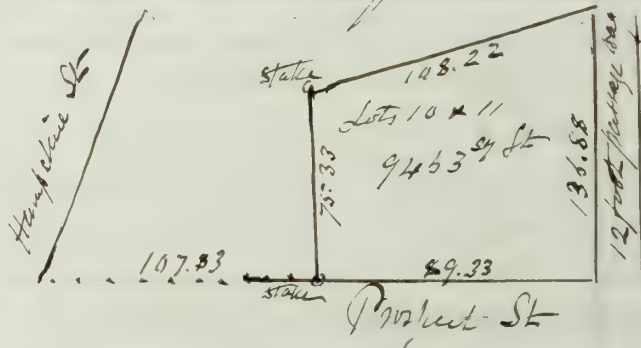 Hampshire St
stake
108.22
Lots 10 & 11
9453 sq ft
75.33
136.88
12 foot passage way
107.33
stake
89.33
Prospect St